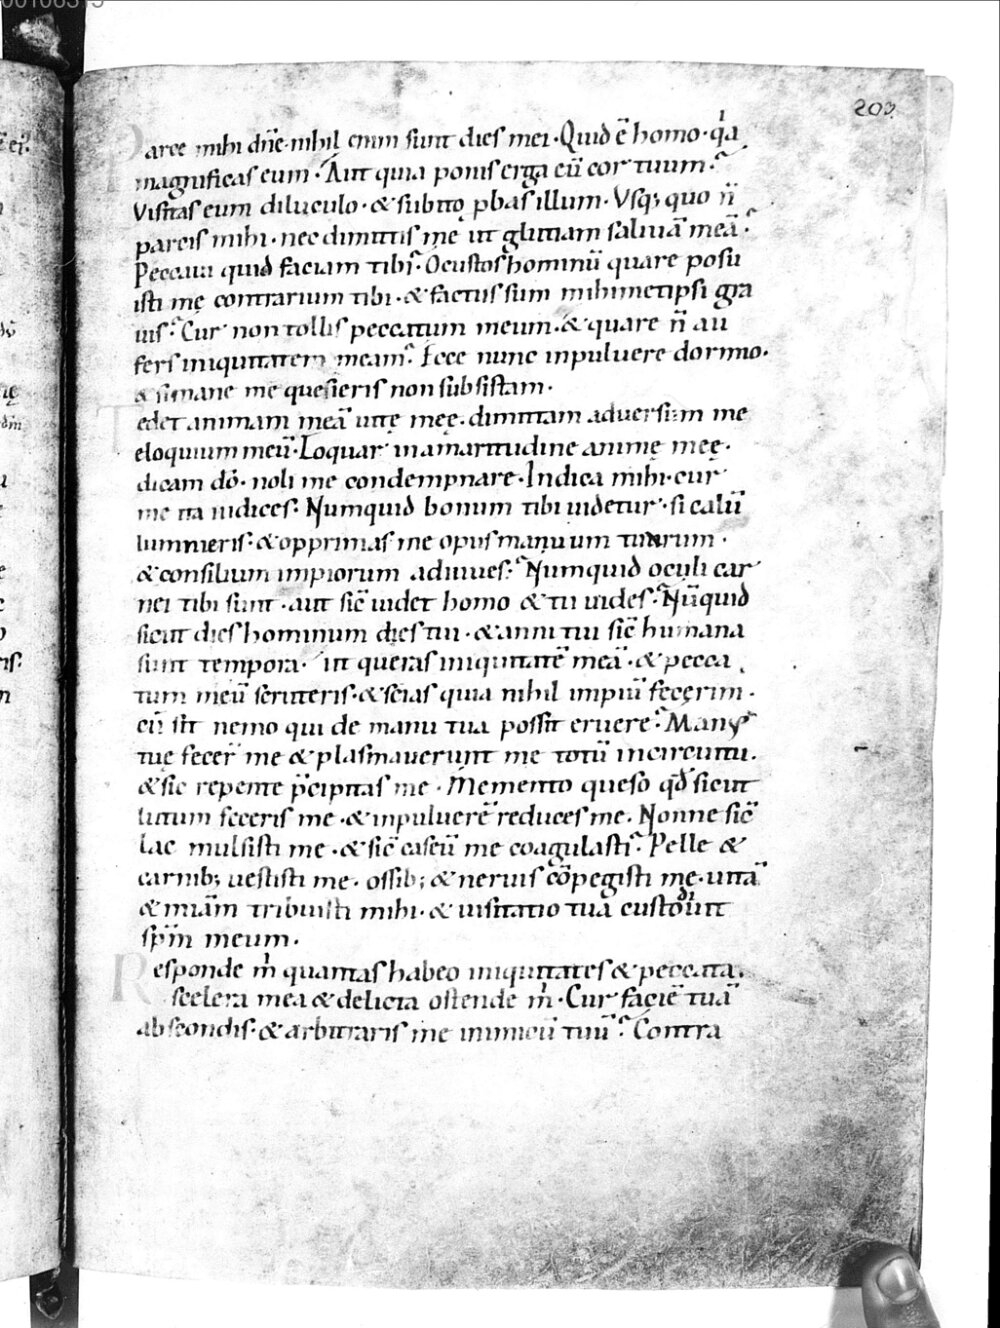 203
Parce mihi dn̄e· nihil enim sunt dies mei· Quid ē homo· q̇a
magnificas eum· Aut quia ponis erga eū cor tuum·
Visitas eum diluculo· & subito ꝓbas illum· Vsq; quo n̄
parcis mihi· nec dimittis me ut glutiam saliuā meā·
Peccaui quid faciam tibi· O custos hominū quare posu
isti me contrarium tibi· & factus sum mihimetipsi gra
uis· Cur non tollis peccatum meum· & quare n̄ au
fers iniquitatem meam· Ecce nunc inpuluere dormio·
& si mane me quesieris non subsistam·
Tedet animam meā uitę meę· dimittam aduersum me
eloquium meū· Loquar inamaritudine animę meę·
dicam dō· noli me condempnare· Indica mihi· cur
me ita iudices· Numquid bonum tibi uidetur· si calū
lummieris· & opprimas me opus manuum tuarum·
& consilium impiorum adiuues· Numquid oculi car
nei tibi sunt· aut sic̄ uidet homo & tu uides· Nūquid
sicut dies hominum dies tui· & anni tui sic̄ humana
sunt tempora· ut queras iniquitatē meā· & pecca
tum meū scruteris· & scias quia nihil impiū fecerim·
cū sit nemo qui de manu tua possit eruere· Manus
tuę fecer̄ me & plasmauerunt me totū incircuitu·
& sic repente p̄cipitas me· Memento queso qđ sicut
lutum feceris me· & inpuluerē reduces me· Nonne sic̄
lac mulsisti me· & sic̄ caseū me coagulasti· Pelle &
carnib; uestisti me· ossib; & neruis cōpegisti me· uitā
& miām tribuisti mihi· & uisitatio tua custodiuit
sp̄m meum·
Responde ṁ quantas habeo iniquitates & peccata·
scelera mea & delicta ostende ṁ· Cur faciē tuā
abscondis· & arbitraris me inimicū tuū· Contra